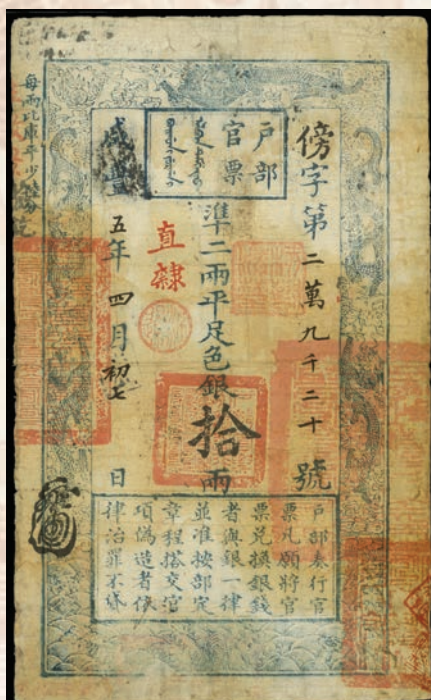 戶部
官票
傍字第二萬九千二十號
準二兩平足色銀拾兩
直隸
咸豐五年四月初七日
每兩比庫平少
戶部奏行官
票凡願將官
票兌換銀錢
者與銀一律
並准按部定
章程搭交官
項偽造者依
律治罪不貸